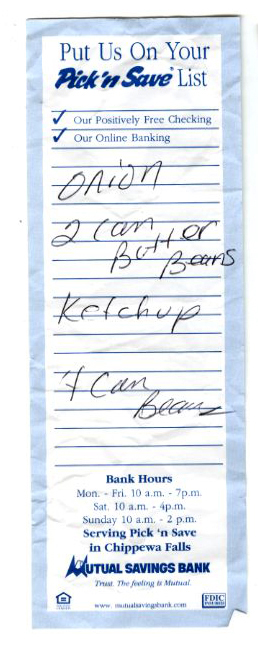 Put Us On Your
Pick 'n Save List
✓ Our Positively Free Checking
✓ Our Online Banking
Onion
2 Can
Butter
Beans
Ketchup
Can
Beans
Bank Hours
Mon. - Fri. 10 a.m. - 7p.m.
Sat. 10 a.m. - 4p.m.
Sunday 10 a.m. - 2 p.m.
Serving Pick 'n Save
in Chippewa Falls
MUTUAL SAVINGS BANK
Trust. The feeling is Mutual.
www.mutualsavingsbank.com
FDIC
INSURED